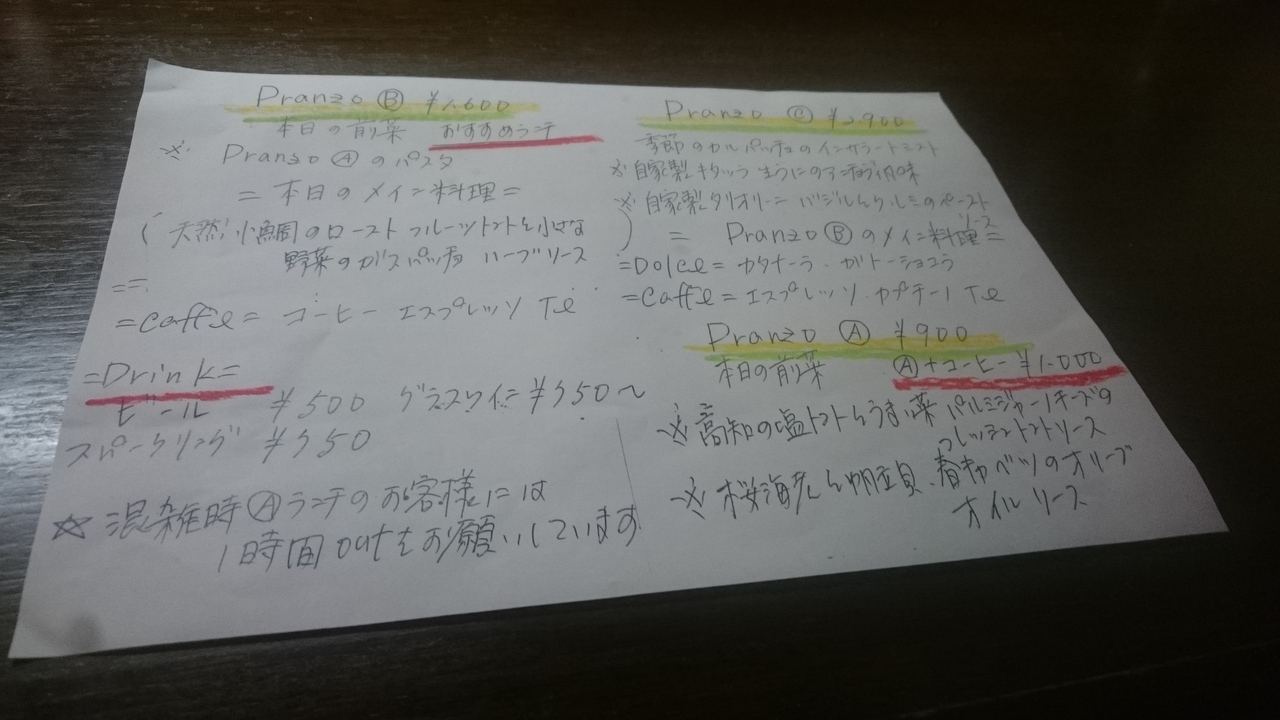 Pranzo Ⓑ ¥1.600
本日の前菜 おすすめランチ
※ Pranzo Ⓐ のパスタ
= 本日のメイン料理 =
( 天然小鯛のロースト フルーツトマトと小さな
野菜のガスパッチョ ハーブソース )
=caffe= コーヒー エスプレッソ Te
=Drink=
ビール ¥500 グラスワイン ¥350〜
スパークリング ¥350
☆ 混雑時Ⓐランチのお客様には
1時間outをお願いしています
Pranzo Ⓒ ¥2900
季節のカルパッチョのインサラートミスト
※自家製キタッラ 生うにの
※自家製タリオリーニ バジルとクルミのペースト
ソース
= Pranzo Ⓑ のメイン料理 =
=Dolce= カタナーラ・ガトーショコラ
=caffe= エスプレッソ カプチーノ Te
Pranzo Ⓐ ¥900
本日の前菜 Ⓐ+コーヒー ¥1.000
※ 高知の塩トマトとうまい菜 パルミジャーノチーズの
フレッシュトマトソース
※ 桜海老と帆立貝、春キャベツのオリーブ
オイルソース